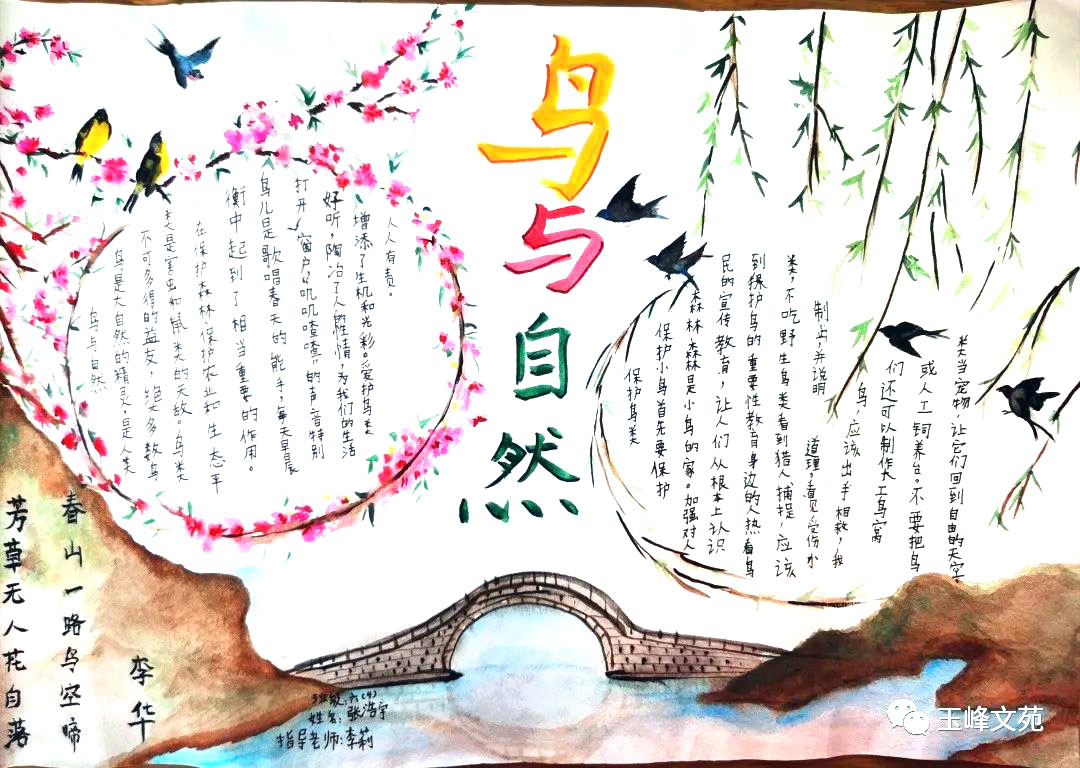 鸟与自然
鸟与自然
鸟是大自然的精灵,是人类
不可多得的益友,绝大多数鸟
类是害虫和鼠类的天敌。鸟类
在保护森林、保护农业和生态平
衡中起到了相当重要的作用。
鸟儿是歌唱春天的能手,每天早晨
打开窗户“叽叽喳喳”的声音特别
好听,陶冶了人的性情,为我们的生活
增添了生机和光彩。爱护鸟类
人人有责。
保护鸟类
保护小鸟首先要保护
森林森森是小鸟的家。加强对人
民的宣传教育,让人们从根本上认识
到保护鸟的重要性教育身边的人热看鸟
类,不吃野生鸟类看到猎人捕捉,应该
制止并说明
道理,看见受伤小
鸟,应该出手相救,我
们还可以制作人工鸟窝
或人工饲养台。不要把鸟
类当宠物,让它们回到自由的天空。
芳草无人花自落
春山一路鸟空啼
李华
班级:六(4)
姓名:张浩宇
指导老师:李莉
玉峰文苑